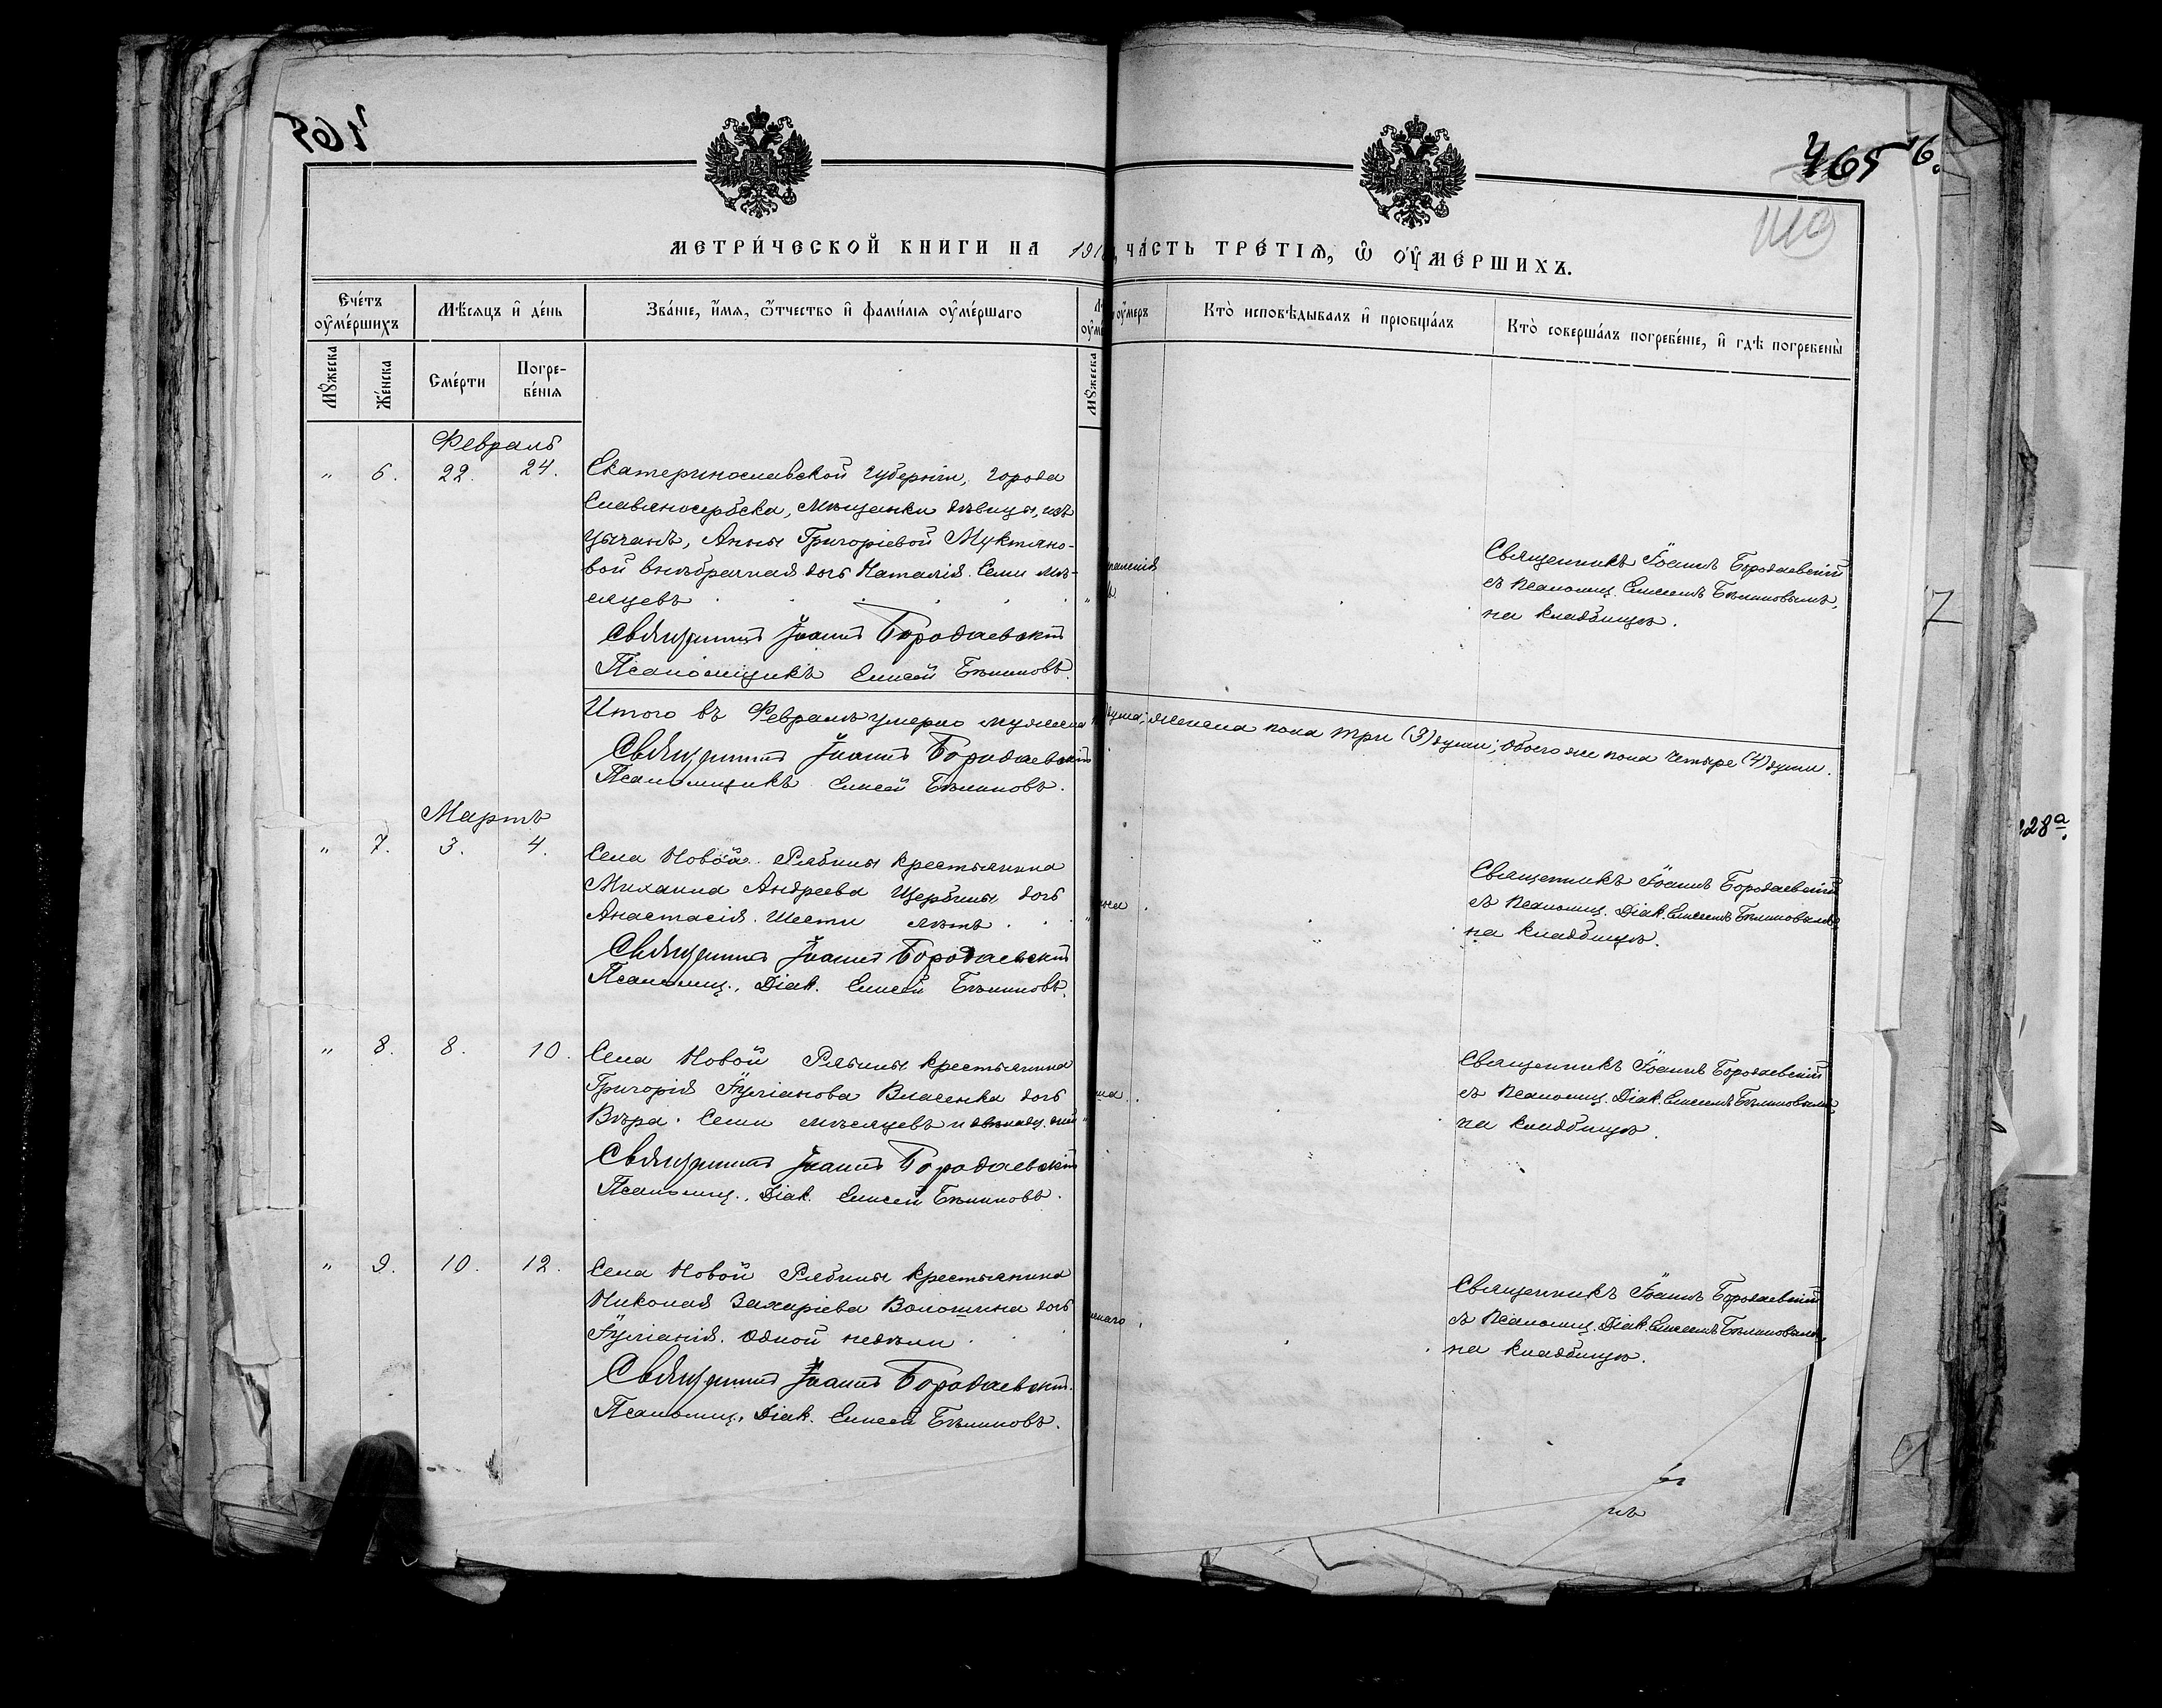 465
465
16.
119
МЕТРИ́ЧЕСКОЙ КНИГИ НА 191 , ЧА́СТЬ ТРЕ́ТІѦ, Ѡ ОУМЕ́РШИХЪ.
Сче́тъ оуме́ршихъ
Мѣ́сяцъ и де́нь
Зва́ніе, и́мя, ѻ́тчество и фами́лія оуме́ршаго
оу́меръ
Кто̀ исповѣ́дывалъ и пріобща́лъ
Кто̀ соверша́лъ погребе́ніе, и гдѣ̀ погребены̀
Мꙋжеска
Же́нска
Сме́рти
Погре-
бе́нія
Мꙋжеска
Февраль
" 6. 22. 24. Екатеринославской губерніи, города
Славяносербска, мѣщанки дѣвицы, изъ
цыганъ, Анны Григоріевой Муктяно-
вой внѣбрачная дочь Наталія. Семи мѣ-
сяцевъ
Священникъ Іоаннъ Бородаевскій
Псаломщикъ Елисей Бѣликовъ.
Священникъ Іоаннъ Бородаевскій
съ псаломщ. Елисеемъ Бѣликовымъ,
на кладбищѣ.
Итого въ Февралѣ умерло мужеска душа; женска пола три (3) души; обоего же пола четыре (4) души.
Священникъ Іоаннъ Бородаевскій
Псаломщикъ Елисей Бѣликовъ.
Мартъ
" 7. 3. 4. Села Новой Рябины крестьянина
Михаила Андреева Щербины дочь
Анастасія. Шести лѣтъ.
Священникъ Іоаннъ Бородаевскій
Псаломщ., Діак. Елисей Бѣликовъ.
Священникъ Іоаннъ Бородаевскій
съ псаломщ. Діак. Елисеемъ Бѣликовымъ,
на кладбищѣ.
" 8. 8. 10. Села Новой Рябины крестьянина
Григорія Іуліанова Власенка дочь
Вѣра. Семи мѣсяцевъ и двѣнадц. дней
Священникъ Іоаннъ Бородаевскій
Псаломщ., Діак. Елисей Бѣликовъ.
Священникъ Іоаннъ Бородаевскій
съ псаломщ. Діак. Елисеемъ Бѣликовымъ,
на кладбищѣ.
" 9. 10. 12. Села Новой Рябины крестьянина
Николая Захаріева Волошина дочь
Іуліанія. Одной недѣли.
Священникъ Іоаннъ Бородаевскій.
Псаломщ., Діак. Елисей Бѣликовъ.
Священникъ Іоаннъ Бородаевскій
съ псаломщ. Діак. Елисеемъ Бѣликовымъ,
на кладбищѣ.
7
128а.